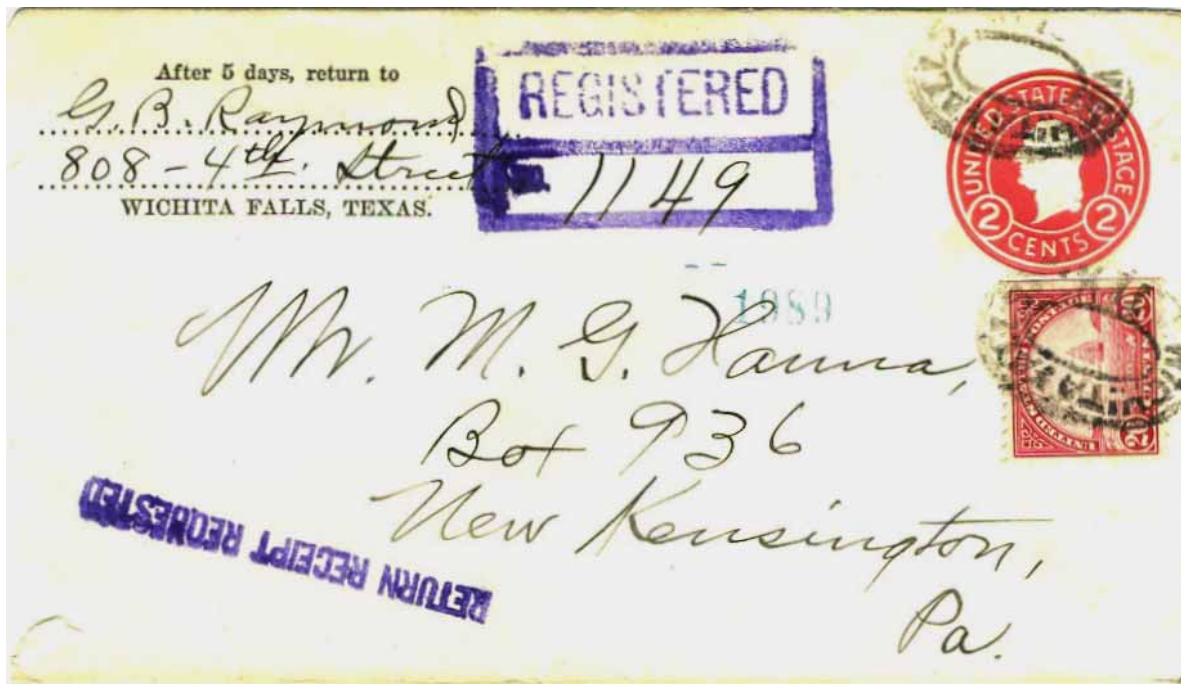 After 5 days, return to
G. B. Raymond
808 - 4th. Street
WICHITA FALLS, TEXAS.
REGISTERED
1149
UNITED STATES POSTAGE
2 CENTS 2
1989
Mr. M. G. Hanna,
Box 936
New Kensington,
Pa.
RETURN RECEIPT REQUESTED